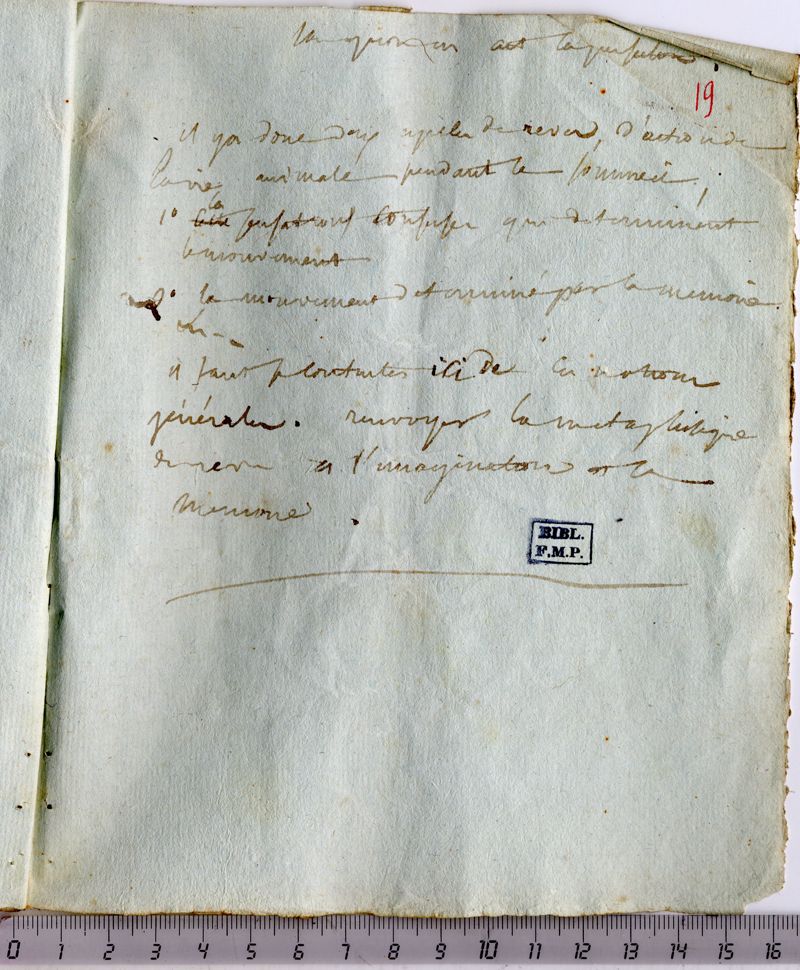 19
il y a donc deux espèces de reves, d'action de
la vie animale pendant le sommeil,
1° la sensations confuses qui determinent
le mouvement
2° le mouvement determiné par la memoire
il faut se contenter ici de ces notions
générales. renvoyer la metaphisique
des reves a l'imagination et la
memoire.
BIBL.
F.M.P.
0 1 2 3 4 5 6 7 8 9 10 11 12 13 14 15 16